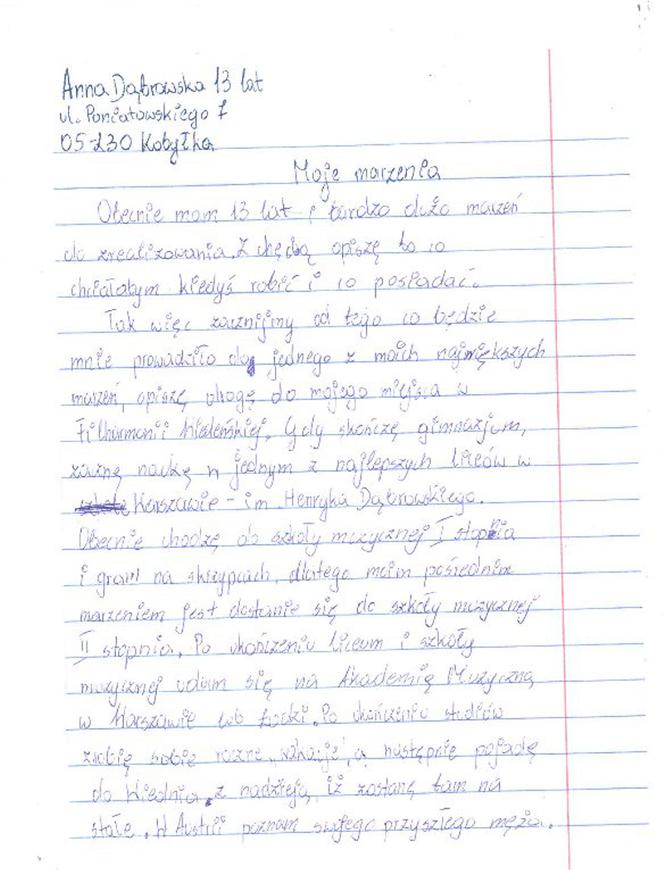 Anna Dąbrowska 13 lat
ul. Poniatowskiego 7
05-230 Kobyłka
Moje marzenia
Obecnie mam 13 lat i bardzo dużo marzeń
do zrealizowania. Z chęcią opiszę to co
chciałabym kiedyś robić i co posiadać.
Tak więc zacznijmy od tego co będzie
mnie prowadziło do jednego z moich największych
marzeń, opiszę drogę do mojego miejsca w
Filharmonii Wiedeńskiej. Gdy skończę gimnazjum,
zacznę naukę w jednym z najlepszych liceów w
Warszawie - im. Henryka Dąbrowskiego.
Obecnie chodzę do szkoły muzycznej I stopnia
i gram na skrzypcach, dlatego moim pośrednim
marzeniem jest dostanie się do szkoły muzycznej
II stopnia. Po ukończeniu liceum i szkoły
muzycznej udam się na Akademię Muzyczną
w Warszawie lub Łodzi. Po ukończeniu studiów
zrobię sobie roczne „wakacje", a następnie pojadę
do Wiednia, z nadzieją, iż zostanę tam na
stałe. W Austrii poznam swojego przyszłego męża.